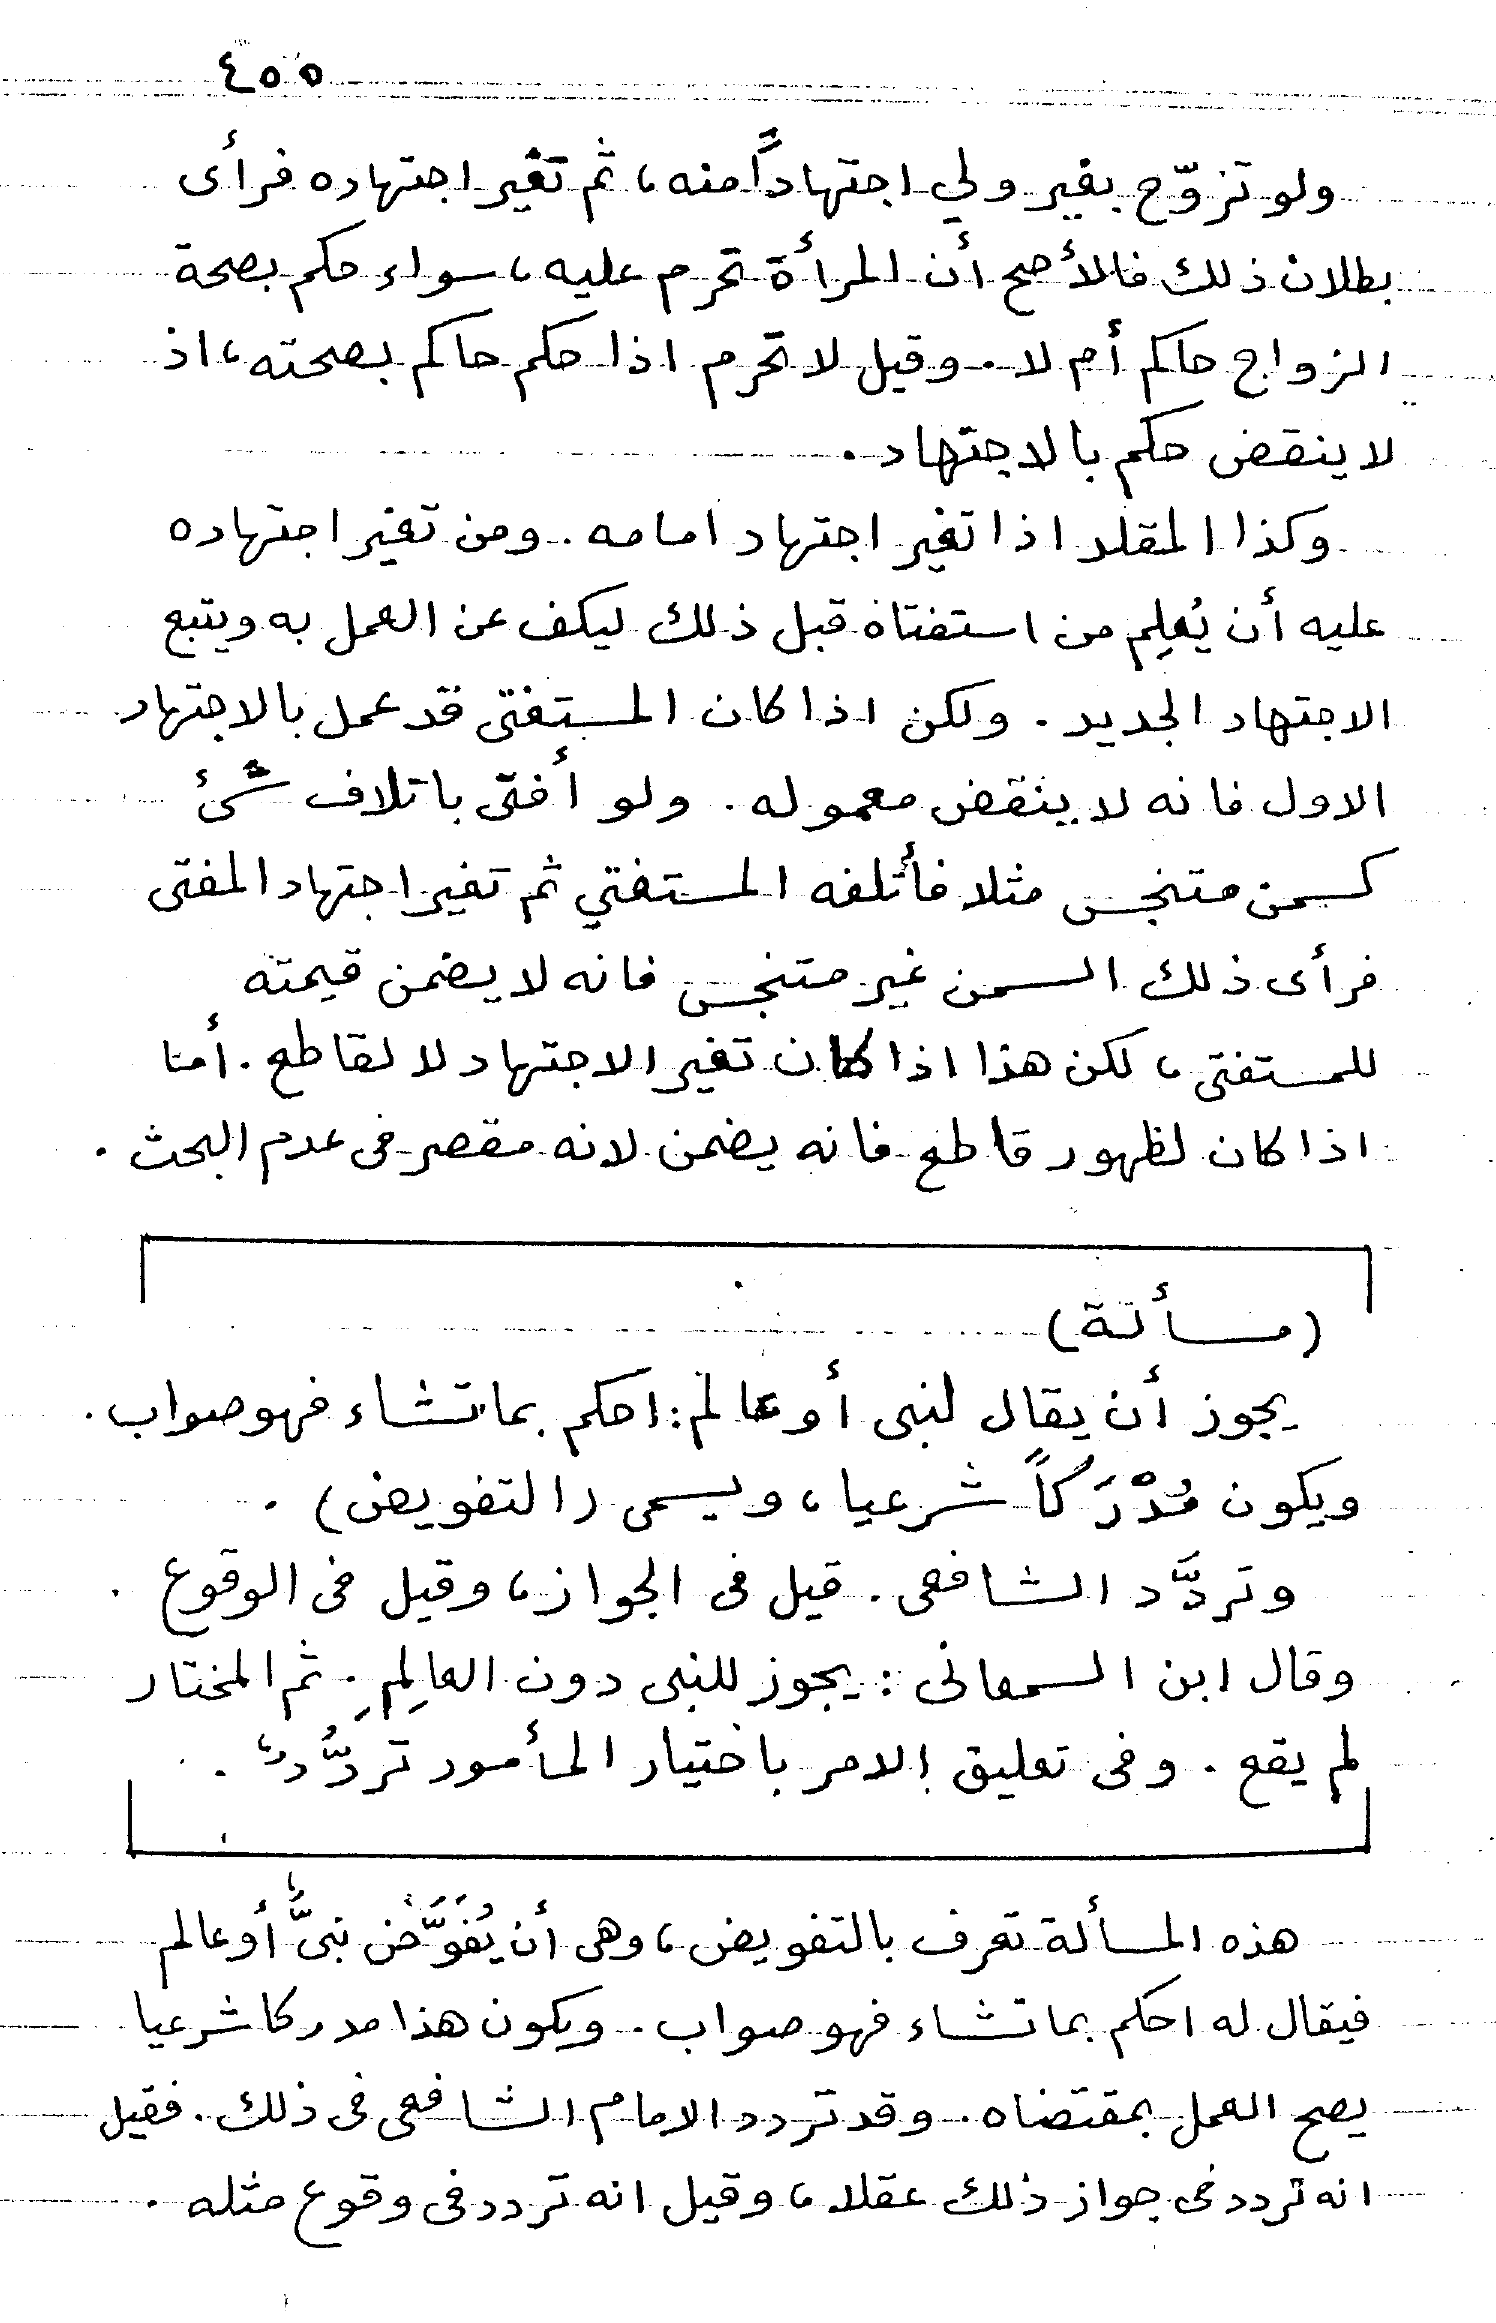 ٤٥٥
ولو تزوّج بغير ولي اجتهاداً منه، ثم تغير اجتهاده فرأى
بطلان ذلك فالأصح أن المرأة تحرم عليه، سواء حكم بصحة
الزواج حاكم أم لا. وقيل لا تحرم اذا حكم حاكم بصحته، اذ
لا ينقض حكم بالاجتهاد.
وكذا المقلد اذا تغير اجتهاد امامه. ومن تغير اجتهاده
عليه أن يُعلِم من استفتاه قبل ذلك ليكف عن العمل به ويتبع
الاجتهاد الجديد. ولكن اذا كان المستفتى قد عمل بالاجتهاد
الاول فانه لا ينقض معموله. ولو أفتى باتلاف شئ
كسمن متنجس مثلا فأتلفه المستفتي ثم تغير اجتهاد المفتى
فرأى ذلك السمن غير متنجس فانه لا يضمن قيمته
للمستفتى، لكن هذا اذا كان تغير الاجتهاد لا لقاطع. أما
اذا كان لظهور قاطع فانه يضمن لانه مقصر فى عدم البحث.
(مسألة)
يجوز أن يقال لنبى أو عالم: احكم بما تشاء فهو صواب.
ويكون مُدْرَكاً شرعيا، ويسمى (التفويض).
وتردَّد الشافعى. قيل فى الجواز، وقيل فى الوقوع.
وقال ابن السمعانى: يجوز للنبى دون العالِمِ. ثم المختار
لم يقع. وفى تعليق الامر باختيار المأمور تردُّدٌ.
هذه المسألة تعرف بالتفويض، وهى أن يُفَوَّضَ نبىٌّ أو عالم
فيقال له احكم بما تشاء فهو صواب. ويكون هذا مدركا شرعيا
يصح العمل بمقتضاه. وقد تردد الامام الشافعى فى ذلك. فقيل
انه تردد فى جواز ذلك عقلا، وقيل انه تردد فى وقوع مثله.